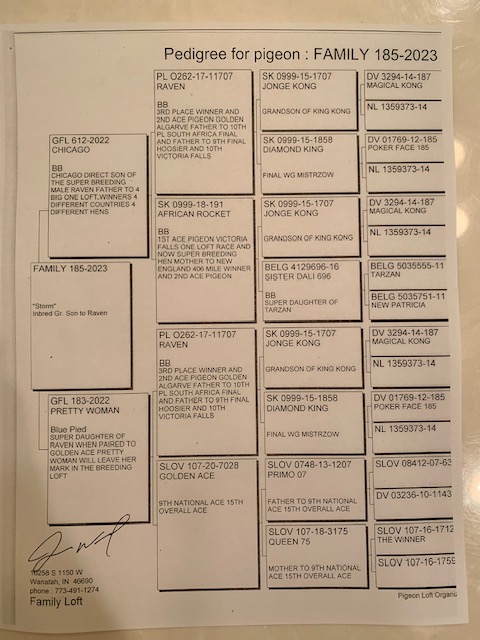 Pedigree for pigeon : FAMILY 185-2023
GFL 612-2022
CHICAGO
BB
CHICAGO DIRECT SON OF
THE SUPER BREEDING
MALE RAVEN FATHER TO 4
BIG ONE LOFT.WINNERS 4
DIFFERENT COUNTRIES 4
DIFFERENT HENS
FAMILY 185-2023
"Storm"
Inbred Gr. Son to Raven
GFL 183-2022
PRETTY WOMAN
Blue Pied
SUPER DAUGHTER OF
RAVEN WHEN PAIRED TO
GOLDEN ACE PRETTY
WOMAN WILL LEAVE HER
MARK IN THE BREEDING
LOFT
PL O262-17-11707
RAVEN
BB
3RD PLACE WINNER AND
2ND ACE PIGEON GOLDEN
ALGARVE FATHER TO 10TH
PL SOUTH AFRICA FINAL
AND FATHER TO 9TH FINAL
HOOSIER AND 10TH
VICTORIA FALLS
SK 0999-18-191
AFRICAN ROCKET
BB
1ST ACE PIGEON VICTORIA
FALLS ONE LOFT RACE AND
NOW SUPER BREEDING
HEN MOTHER TO NEW
ENGLAND 406 MILE WINNER
AND 2ND ACE PIGEON
PL O262-17-11707
RAVEN
BB
3RD PLACE WINNER AND
2ND ACE PIGEON GOLDEN
ALGARVE FATHER TO 10TH
PL SOUTH AFRICA FINAL
AND FATHER TO 9TH FINAL
HOOSIER AND 10TH
VICTORIA FALLS
SLOV 107-20-7028
GOLDEN ACE
9TH NATIONAL ACE 15TH
OVERALL ACE
SK 0999-15-1707
JONGE KONG
GRANDSON OF KING KONG
SK 0999-15-1858
DIAMOND KING
FINAL WG MISTRZOW
SK 0999-15-1707
JONGE KONG
GRANDSON OF KING KONG
BELG 4129696-16
SISTER DALI 696
BB
SUPER DAUGHTER OF
TARZAN
SK 0999-15-1707
JONGE KONG
GRANDSON OF KING KONG
SK 0999-15-1858
DIAMOND KING
FINAL WG MISTRZOW
SLOV 0748-13-1207
PRIMO 07
FATHER TO 9TH NATIONAL
ACE 15TH OVERALL ACE
SLOV 107-18-3175
QUEEN 75
MOTHER TO 9TH NATIONAL
ACE 15TH OVERALL ACE
DV 3294-14-187
MAGICAL KONG
NL 1359373-14
DV 01769-12-185
POKER FACE 185
NL 1359373-14
DV 3294-14-187
MAGICAL KONG
NL 1359373-14
BELG 5035555-11
TARZAN
BELG 5035751-11
NEW PATRICIA
DV 3294-14-187
MAGICAL KONG
NL 1359373-14
DV 01769-12-185
POKER FACE 185
NL 1359373-14
SLOV 08412-07-63
DV 03236-10-1143
SLOV 107-16-1712
THE WINNER
SLOV 107-16-1759
S 1150 W
Wanatah, IN 46690
phone : 773-491-1274
Family Loft
Pigeon Loft Organiz